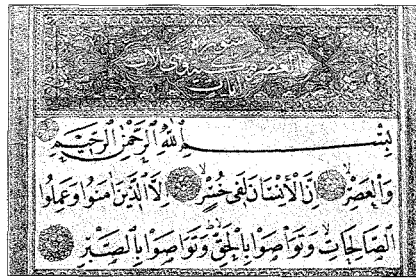 سورة
العصر وهي ثلاث
آيات
بِسْمِ اللهِ الرَّحْمٰنِ الرَّحِيمِ
وَالْعَصْرِۙ اِنَّ الْاِنْسَانَ لَفِي خُسْرٍۙ اِلَّا الَّذِينَ اٰمَنُوا وَعَمِلُوا
الصَّالِحَاتِ وَتَوَاصَوْا بِالْحَقِّ وَتَوَاصَوْا بِالصَّبْرِ